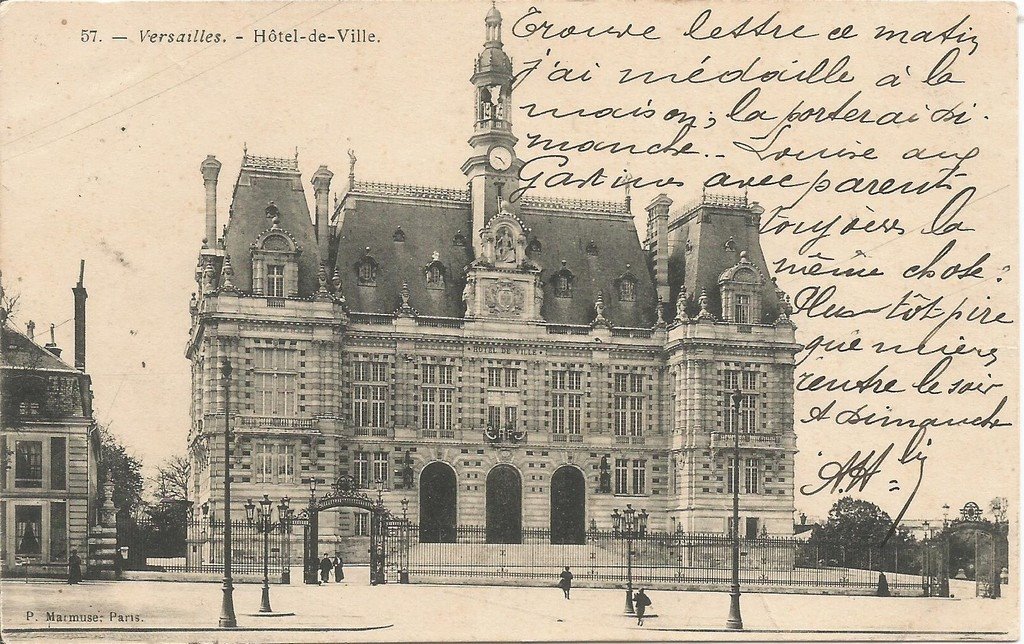 57. — Versailles. - Hôtel-de-Ville.
Trouve lettre ce matin
j'ai médaille à la
maison; la porterai di-
manche.. Louise aux
Gastines avec parents
toujours la
même chose:
Plus tôt pire
que mieux,
rentre le soir
A Dimanche
HÔTEL DE VILLE
P. Marmuse, Paris.